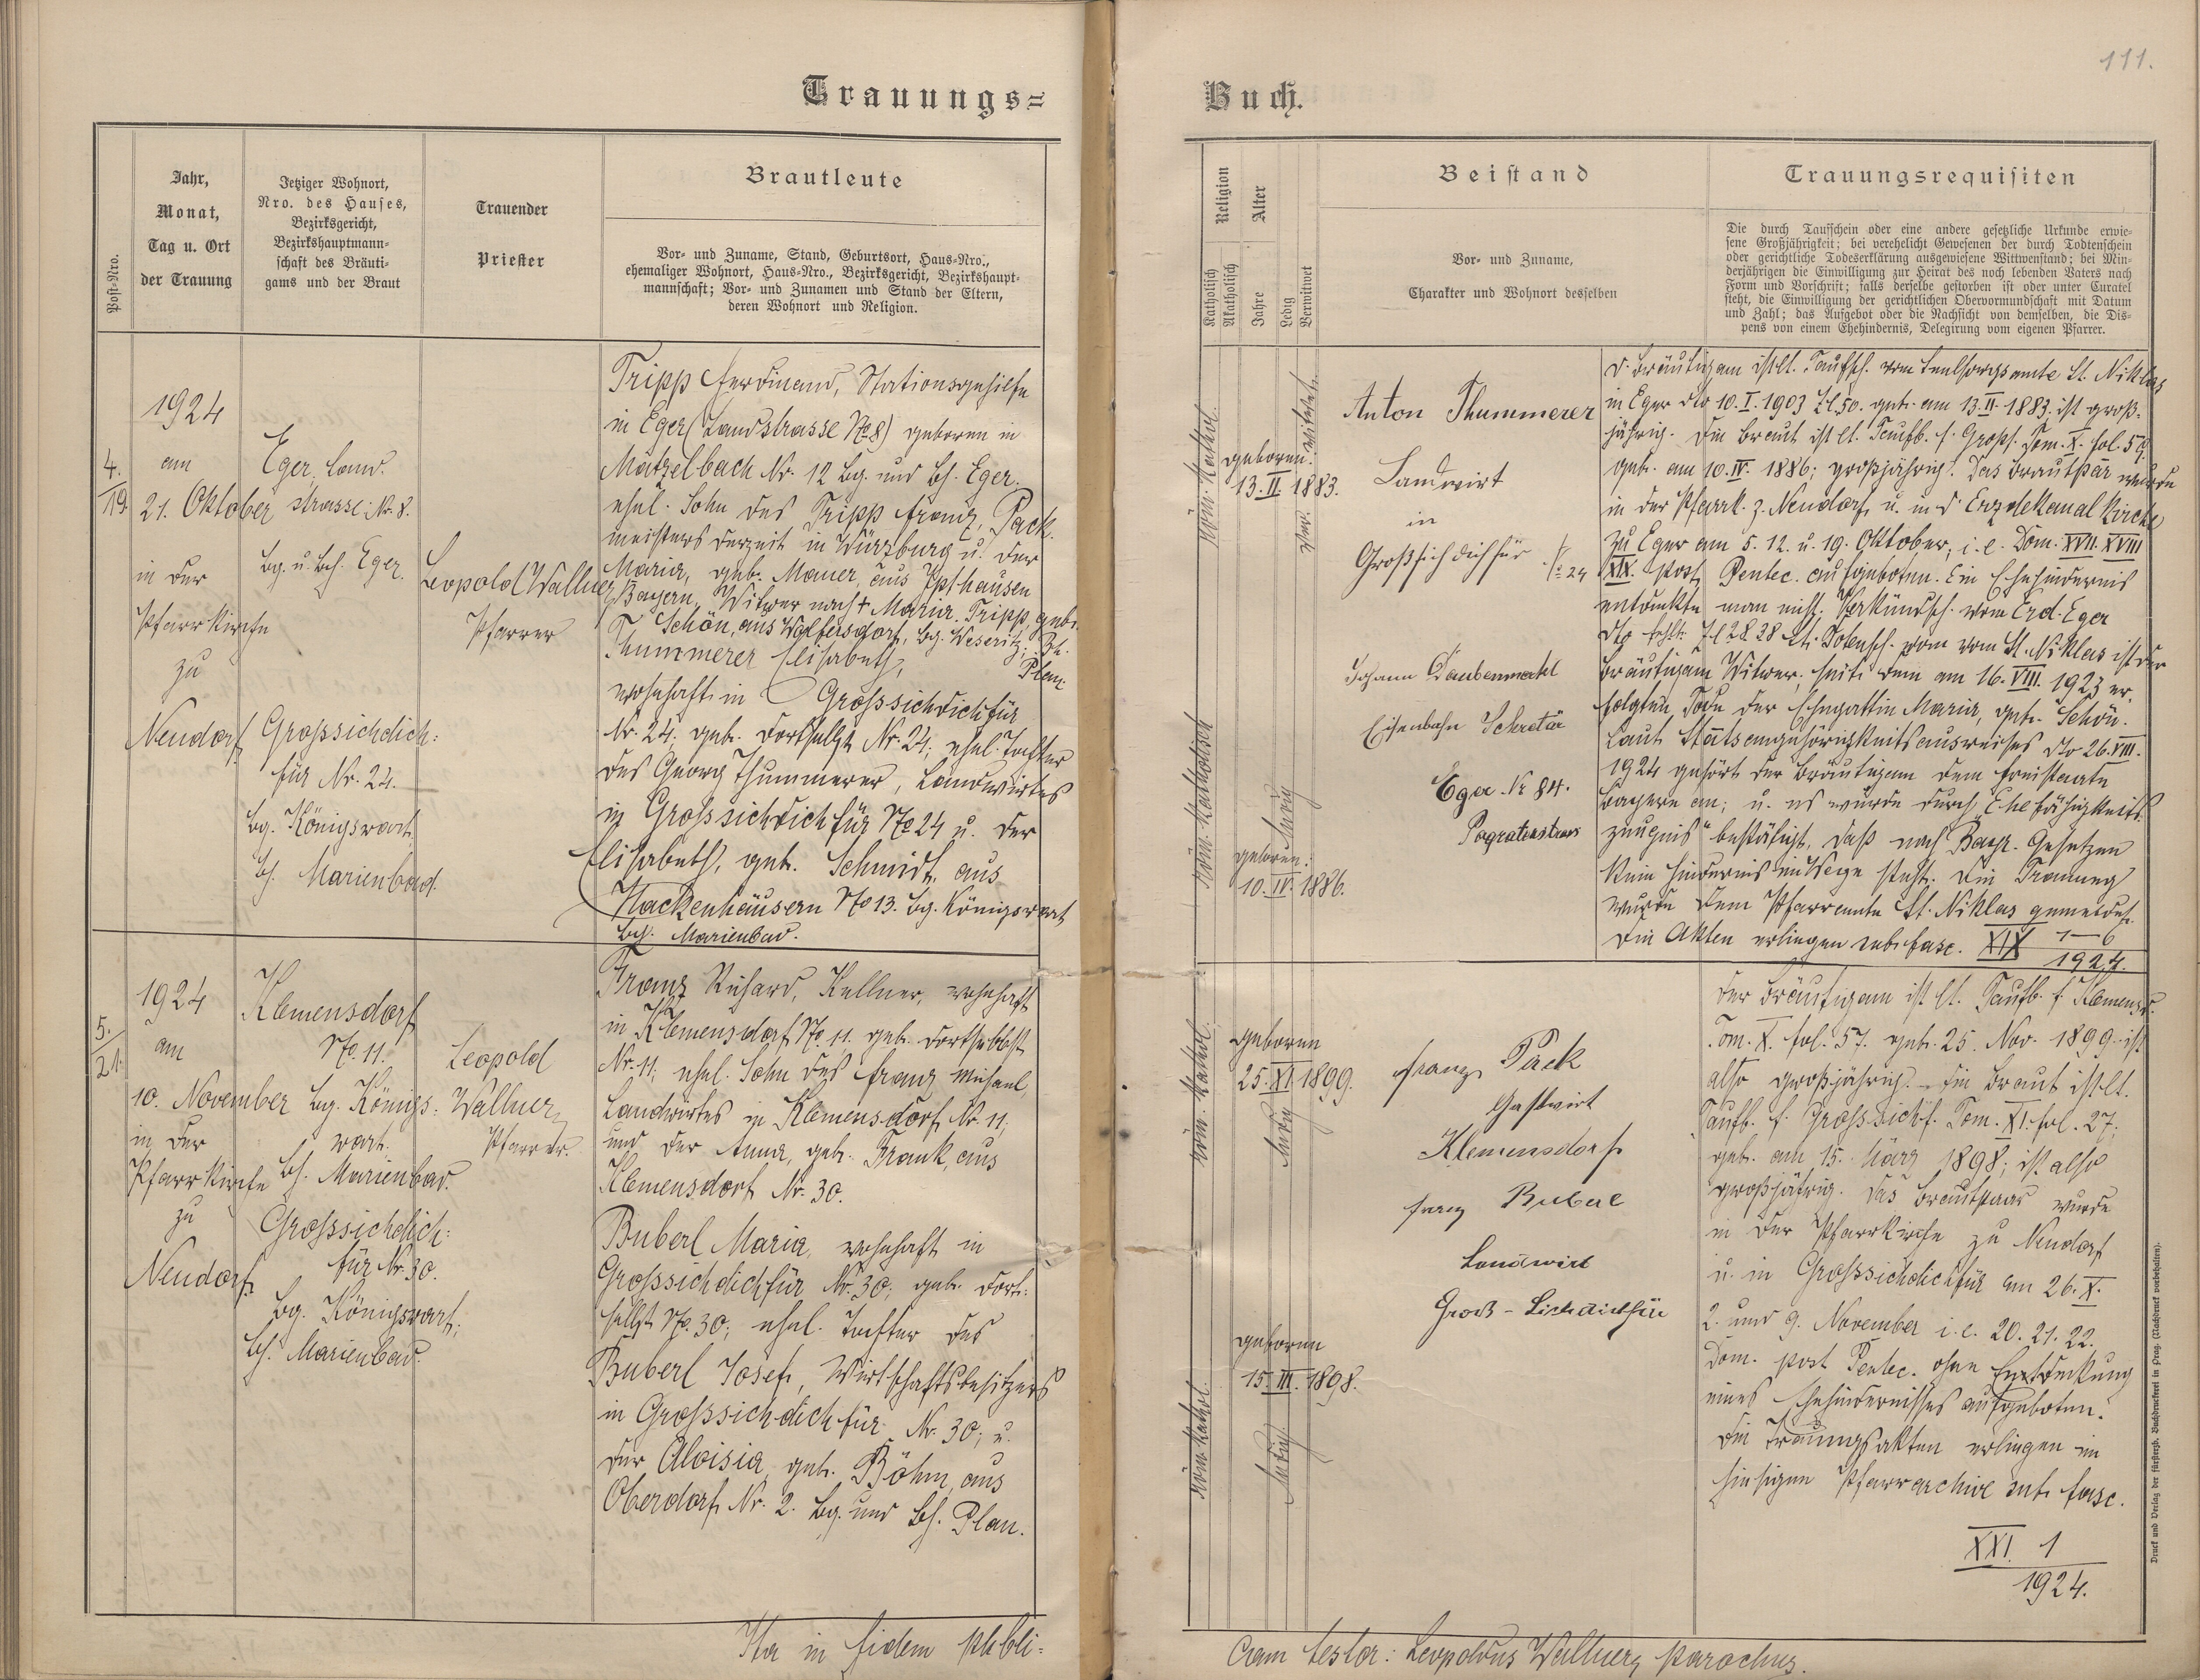 111.
Trauungs=
Buch.
Post-Nro.
Jahr,
Monat,
Tag u. Ort
der Trauung
Jetziger Wohnort,
Nro. des Hauses,
Bezirksgericht,
Bezirkshauptmann-
schaft des Bräuti-
gams und der Braut
Trauender
Priester
Brautleute
Vor- und Zuname, Stand, Geburtsort, Haus-Nro.,
ehemaliger Wohnort, Haus-Nro., Bezirksgericht, Bezirkshaupt-
mannschaft; Vor- und Zunamen und Stand der Eltern,
deren Wohnort und Religion.
4.
19.
1924
am
21. Oktober
in der
Pfarrkirche
zu
Neudorf
Eger, Land-
strasse Nr. 8.
Bg. u. Bh. Eger.
Grosssichdich:
für Nr. 24.
Bg. Königswart,
Bh. Marienbad.
Leopold Wallner,
Pfarrer
Tripp Ferdinand, Stationsgehilfe
in Eger (Landstrasse No 8) geboren in
Matzelbach Nr. 12 Bg. und Bh. Eger.
ehel. Sohn des Tripp Franz, Pack-
meisters derzeit in Würzburg u. der
Maria, geb. Mauer, aus Ipthausen
Bayern, Witwer nach + Maria Tripp, geb.
Schön, aus Wolfersdorf, Bg. Weseritz, Bh.
Plan
Thummerer Elisabeth,
wohnhaft in Grosssichdichfür
Nr. 24. geb. dortselbst Nr. 24; ehel. Tochter
des Georg Thummerer, Landwirtes
in Grosssichdichfür No 24 u. der
Elisabeth, geb. Schmidt, aus
Hackenhäusern No 13. Bg. Königswart,
Bh. Marienbad.
5.
21.
1924
am
10. November
in der
Pfarrkirche
zu
Neudorf.
Klemensdorf
No. 11.
Bg. Königs:
wart.
Bh. Marienbad.
Grosssichdich:
für Nr. 30.
Bg. Königswart;
Bh. Marienbad.
Leopold
Wallner,
Pfarrer.
Franz Richard, Kellner, wohnhaft
in Klemensdorf No. 11. geb. dortselbst
Nr. 11; ehel. Sohn des Franz Michael,
Landwirtes in Klemensdorf Nr. 11;
und der Anna, geb. Frank, aus
Klemensdorf Nr. 30.
Buberl Maria, wohnhaft in
Grosssichdichfür Nr. 30; geb. dort-
selbst No. 30; ehel. Tochter des
Buberl Josef, Wirtschaftsbesitzers
in Grosssichdichfür Nr. 30; u.
der Aloisia, geb. Böhm, aus
Oberdorf Nr. 2. Bg. und Bh. Plan.
Ita in fidem publi-
Religion
Katholisch
Akatholisch
Alter
Jahre
Ledig
Verwitwet
Beistand
Vor- und Zuname,
Charakter und Wohnort desselben
Trauungsrequisiten
Die durch Taufschein oder eine andere gesetzliche Urkunde erwie-
sene Großjährigkeit; bei verehelicht Gewesenen der durch Todtenschein
oder gerichtliche Todeserklärung ausgewiesene Wittwenstand; bei Min-
derjährigen die Einwilligung zur Heirat des noch lebenden Vaters nach
Form und Vorschrift; falls derselbe gestorben ist oder unter Curatel
steht, die Einwilligung der gerichtlichen Obervormundschaft mit Datum
und Zahl; das Aufgebot oder die Nachsicht von demselben, die Dis-
pens von einem Ehehindernis, Delegirung vom eigenen Pfarrer.
Röm. Kathol.
geboren:
13. II. 1883.
verwitwet.
Röm. Katholisch
geboren:
10. IV. 1886.
ledig
Anton Thummerer
Landwirt
in
Großsichdichfür
No 24
Johann Daubenmerkl
Eisenbahn Sekretär
Eger Nr 84.
D. Bräutigam ist lt. Taufsch. vom Seelsorgsamte St. Niklas
in Eger dto 10. I. 1903 Zl. 50. geb. am 13. II. 1883. ist groß-
jährig. Die Braut ist lt. Taufb. f. Grosss. Tom. X. fol. 59.
geb. am 10. IV. 1886; großjährig. Das Brautpaar wurde
in der Pfarrk. z. Neudorf u. in d Erzdekanalkirche
zu Eger am 5. 12. u. 19. Oktober, i. e. Dom. XVII. XVIII
XIX. post Pentec. aufgeboten. Ein Ehehindernis
entdeckte man nicht. Verkündsch. vom Erzd. Eger
Bräutigam Witwer, seit dem am 16. VIII. 1923 er-
folgten Tode der Ehegattin Maria, geb. Schön.
Laut Staatsangehörigkeitsausweises dto 26. VIII.
1924 gehört der Bräutigam dem Freistaate
Bayern an; u. es wurde durch "Ehefähigkeits-
zeugnis" bestätigt, daß nach Bayr. Gesetzen
kein Hindernis im Wege steht. Die Trauung
wurde dem Pfarramte St. Niklas gemeldet.
Die Akten erliegen sub. fasc. XIX 1–6
1924.
Röm. Kathol.
geboren
25. XI 1899.
ledig
Röm. Kathol.
geboren
15. III. 1898.
ledig
Franz Pack
Gastwirt
Klemensdorf
Franz Buberl
Landwirt
Groß-Sichdichfür
Der Bräutigam ist lt. Taufb. f. Klemensd.
Tom. X. fol. 57. geb. 25. Nov. 1899. ist
also großjährig. Die Braut ist lt.
Taufb. f. Grosssichdf. Tom. XI. fol. 27.
geb. am 15. März 1898; ist also
großjährig. Das Brautpaar wurde
in der Pfarrkirche zu Neudorf
u. in Grosssichdichfür am 26. X.
2. und 9. November i. e. 20. 21. 22.
Dom. post Pentec. ohne Entdeckung
eines Ehehindernisses aufgeboten.
Die Trauungsakten erliegen im
hiesigen Pfarrarchive sub. fasc.
XXI. 1
1924.
cam testor: Leopoldus Wallner, parochus.
Druck und Verlag der fürsterzb. Buchdruckerei in Prag. (Nachdruck vorbehalten).